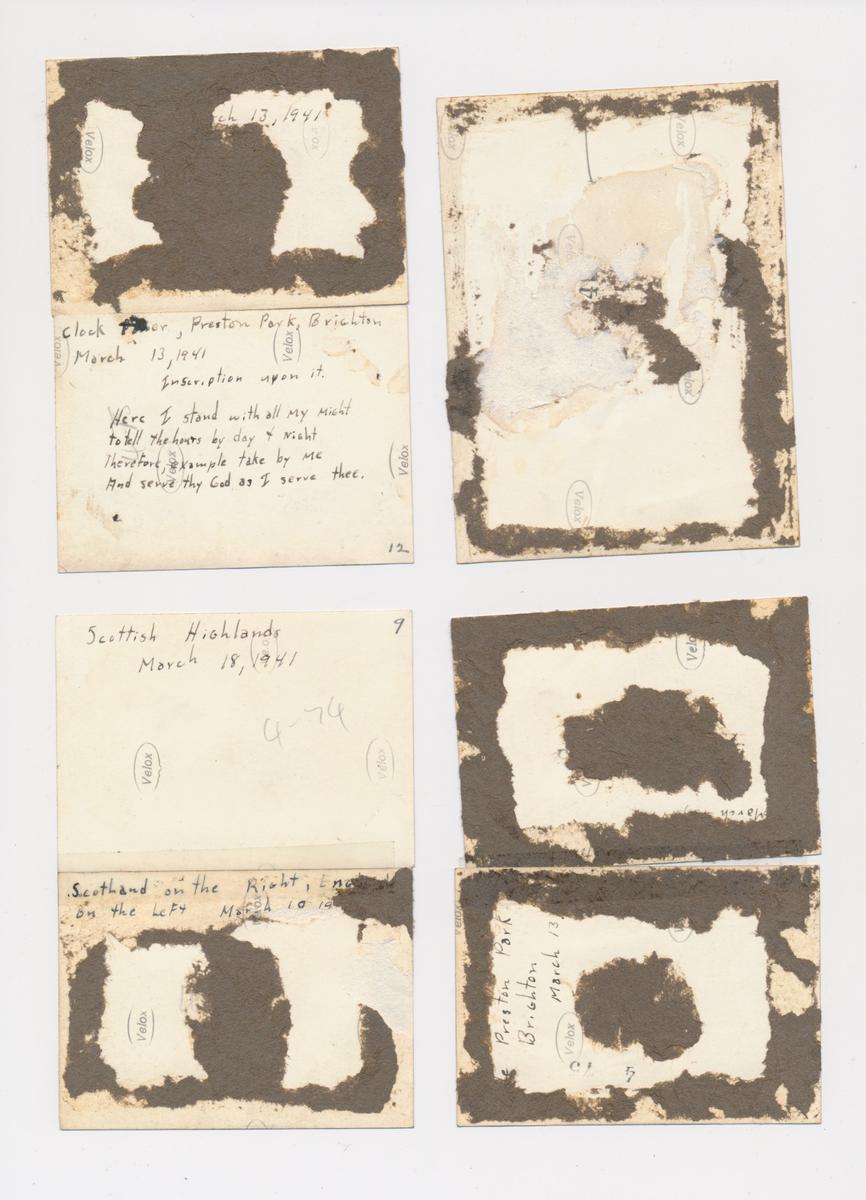 ch 13, 1941
Velox
Clock Tower, Preston Park, Brighton
March 13, 1941
Velox
Inscription upon it.
Here I stand with all My Might
to tell the hours by day & Night
Therefore, example take by Me
And serve thy God as I serve thee.
Velox
Velox
12
Velox
Velox
4
Scottish Highlands
9
March 18, 1941
4-74
Velox
Velox
Scotland on the Right, Eng
on the Left March 10 19
Velox
Velox
March
Preston Park
Brighton
March 13
Velox
5